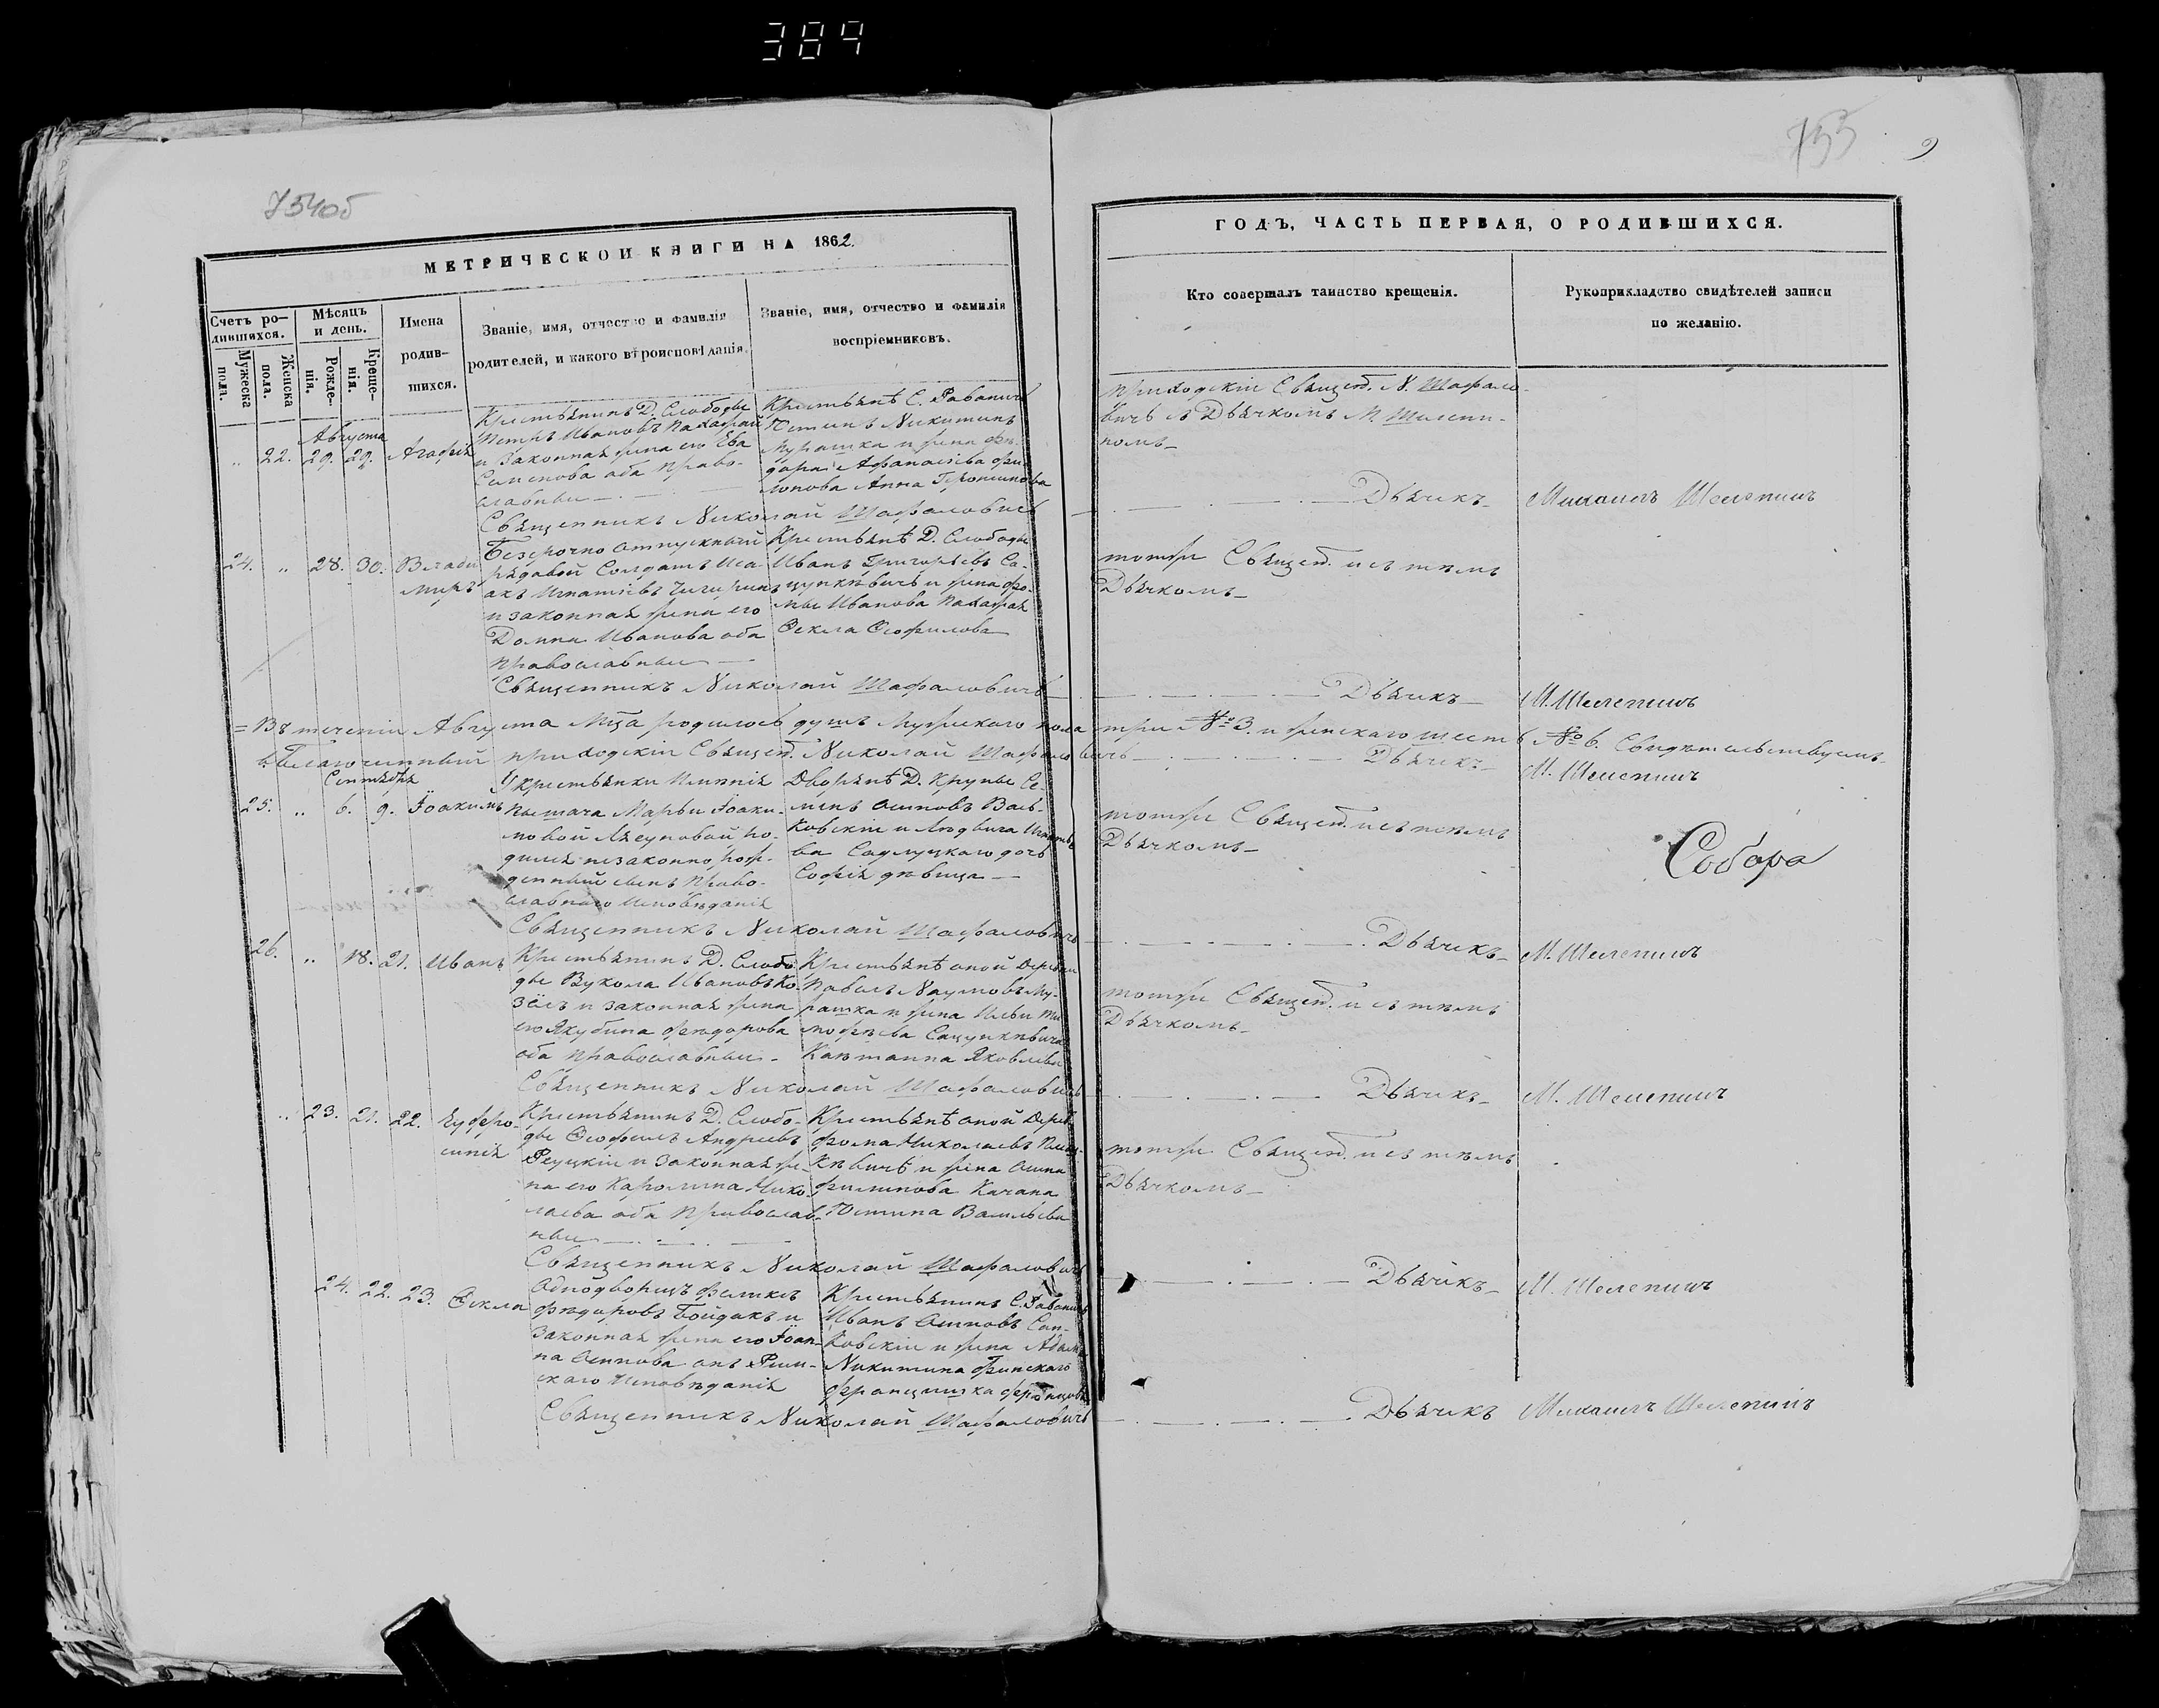 389
754об
755
9
МЕТРИЧЕСКОЙ КНИГИ НА 1862.
ГОДЪ, ЧАСТЬ ПЕРВАЯ, О РОДИВШИХСЯ.
Счетъ ро-
дившихся.
Мужеска пола.
Женска пола.
Мѣсяцъ
и день.
Рожде-
нія.
Креще-
нія.
Имена
родив-
шихся.
Званіе, имя, отчество и фамилія
родителей, и какого вѣроисповѣданія.
Званіе, имя, отчество и фамилія
воспріемниковъ.
Кто совершалъ таинство крещенія.
Рукоприкладство свидѣтелей записи
по желанію.
Августа
„ 22. 29. 29. Агафія
Крестьянинъ Д. Слободы
Петръ Ивановъ
и законная жена его Ева
Семенова оба право-
славные
Крестьянѣ С.
Юстинъ Никитинъ
Мурашка и жена Фе-
дора Афанасьева
Анна
приходскій Священ. Н. Шафало-
вичъ съ Дьячкомъ М. Шелепи-
номъ
Священникъ Николай Шафаловичъ
Дьячекъ Михаилъ Шелепинъ
24. „ 28. 30. Влади
миръ
Безсрочно отпускный
рядовой Солдатъ Иса-
акъ Игнатіевъ
и законная жена его
Домна Иванова оба
православные
Крестьянѣ Д. Слободы
Иванъ Григорьевъ Са-
цункѣвичъ и жена Фо-
мы Иванова
Ѳекла Ѳеофилова
тотже Священ. и съ тѣмъ
Дьячкомъ
Священникъ Николай Шафаловичъ
Дьячекъ М. Шелепинъ
=Въ теченіи Августа Мца родилось душъ Мужескаго пола три №3. и женскаго шесть №6. Свидѣтельствуемъ
Благочинный приходскій Священ. Николай Шафаловичъ Дьячекъ М. Шелепинъ
Сентября
25. „ 6. 9. Іоакимъ
У крестьянки имѣнія
Марьи Іоаки-
мовой ро-
дился незаконно рож-
денный сынъ право-
славнаго исповѣданія
Дворянѣ Д. Крупы Се-
менъ Осиповъ Вась-
ковскій и Людвига
дочь
Софія дѣвица
тотже Священ. и съ тѣмъ
Дьячкомъ
Собора
Священникъ Николай Шафаловичъ
Дьячекъ М. Шелепинъ
26. „ 18. 21. Иванъ
Крестьянинъ Д. Слобо
ды Вукола Ивановъ Ко-
зёлъ и законная жена
его Якубина Федорова
оба православные
Крестьянѣ оной деревни
Павелъ Наумовъ Му-
рашка и жена Ильи Ти
мофѣева Сацункѣвича
Каэтанна Яковлева
тотже Священ. и съ тѣмъ
Дьячкомъ
Священникъ Николай Шафаловичъ
Дьячекъ М. Шелепинъ
„ 23. 21. 22. Еуфро-
синія
Крестьянинъ Д. Слобо-
ды Ѳеофилъ Андреевъ
Реуцкій и законная же-
на его Каролина Нико
лаева оба православ-
ные
Крестьянѣ оной дерев.
Фома Николаевъ
и жена Осипа
Филипова Качана
Юстина Васильева
тотже Священ. и съ тѣмъ
Дьячкомъ
Священникъ Николай Шафаловичъ
Дьячекъ М. Шелепинъ
24. 22. 23. Ѳекла
Однодворецъ Феликсъ
Федоровъ Бойдакъ и
законная жена его Іоан-
на Осипова онъ Рим-
скаго исповѣданія
Крестьянинъ С.
Иванъ Осиповъ
и жена Адама
Никитина
Францишка
Священникъ Николай Шафаловичъ
Дьячекъ Михаилъ Шелепинъ